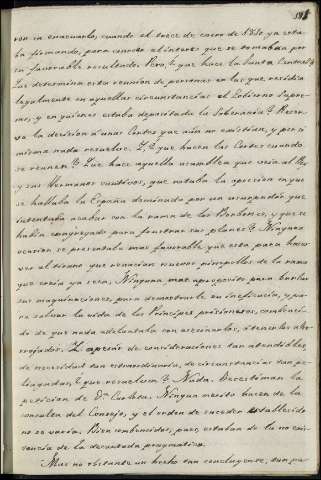 188
con su anacuarlo, cuando el trece de enero de 1810 ya esta-
ba firmando, para conocer el interes que se tomaba por
su favorable resultado. Pero, ¿que hace la Junta Central?
¿Que determina esta reunion de personas en las que residia
legalmente en aquellas circunstancias el Gobierno Supre-
mo, y en quienes estaba depositada la Soberania? Reser-
va la decision a unas Cortes que aún no existian, y por si
misma nada resuelve. Y, ¿que hacen las Cortes cuando
se reunen? ¿Que hace aquella asamblea que veia al Rey
y sus Hermanos cautivos, que notaba la opresion en que
se hallaba la España dominada por un usurpador que
intentaba acabar con la rama de los Borbones, y que se
habia congregado para frustrar sus planes? Ninguna
ocasion se presentaba mas favorable que esta para hacer
ver al tirano que renacian nuevos pimpollos de la rama
que creia ya seca. Ninguna mas aproposito para burlar
sus maquinaciones, para demostrarle su ineficacia, y pa-
ra salvar la vida de los Principes prisioneros, combencien-
dole de que nada adelantaba con asesinarlos, ó tenerlos aher-
rojados. Y apesar de consideraciones tan atendibles,
de necesidad tan estraordinaria, de circunstancias tan pe-
liagudas, ¿que resuelven? Nada. Desestiman la
peticion de D.ª Carlota. Ningun merito hacen de la
consulta del Consejo, y el orden de suceder establecido
no se varía. Bien combencidos, pues, estaban de la no exis-
tencia de la decantada pragmatica.
Mas no obstante un hecho tan concluyente, tan pu-